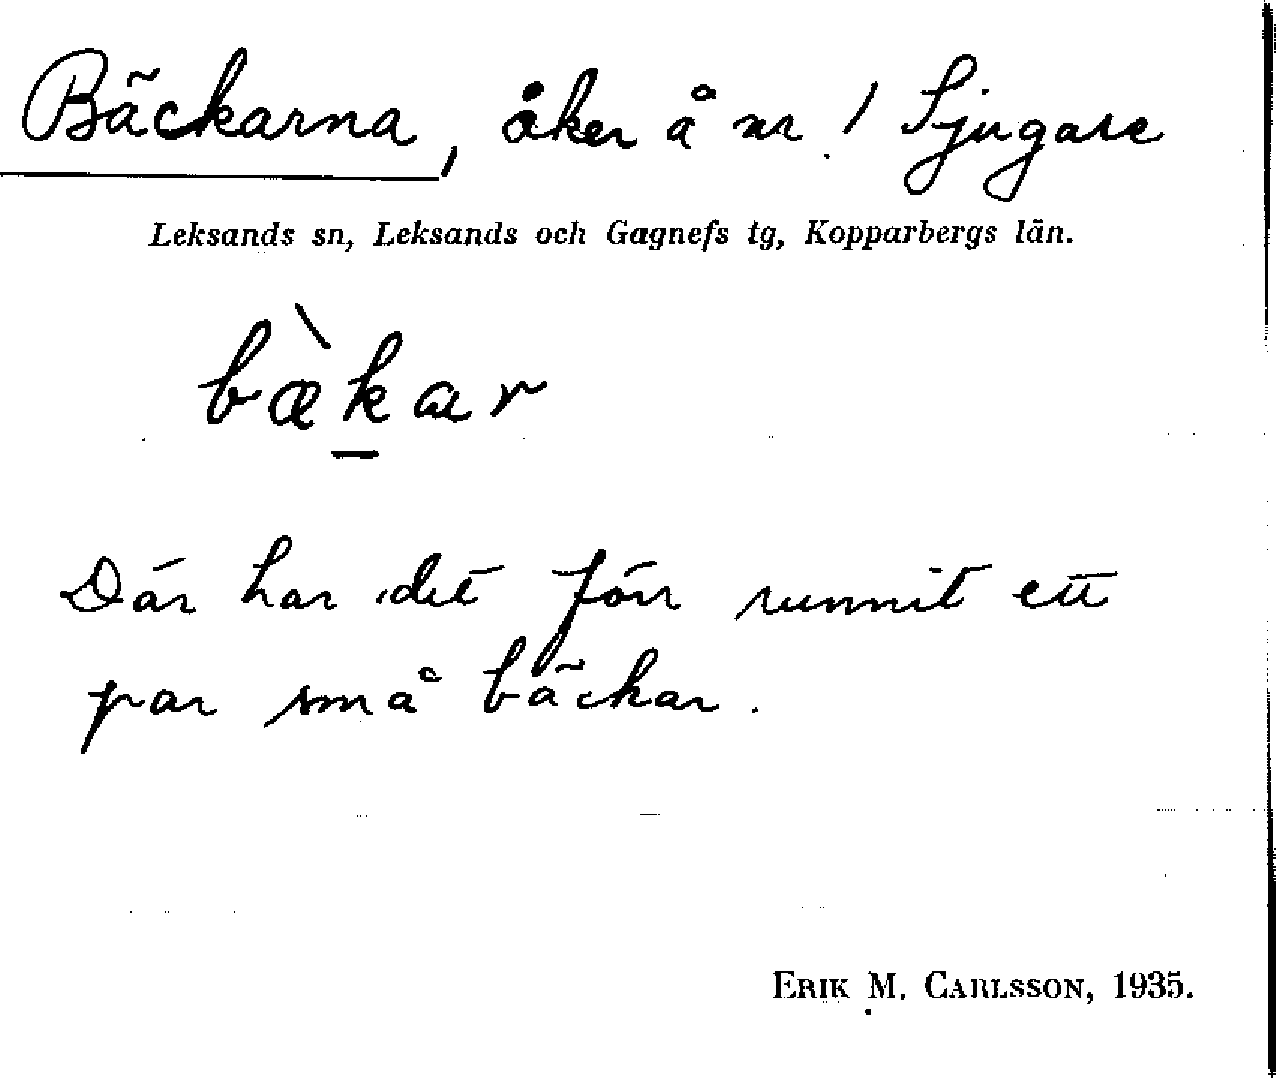 Bäckarna, åker å nr 1 Sjugare
Leksands sn, Leksands och Gagnefs tg, Kopparbergs län.
bæ̀kar
Där har det förr runnit ett
par små bäckar.
ERIK M. CARLSSON, 1935.